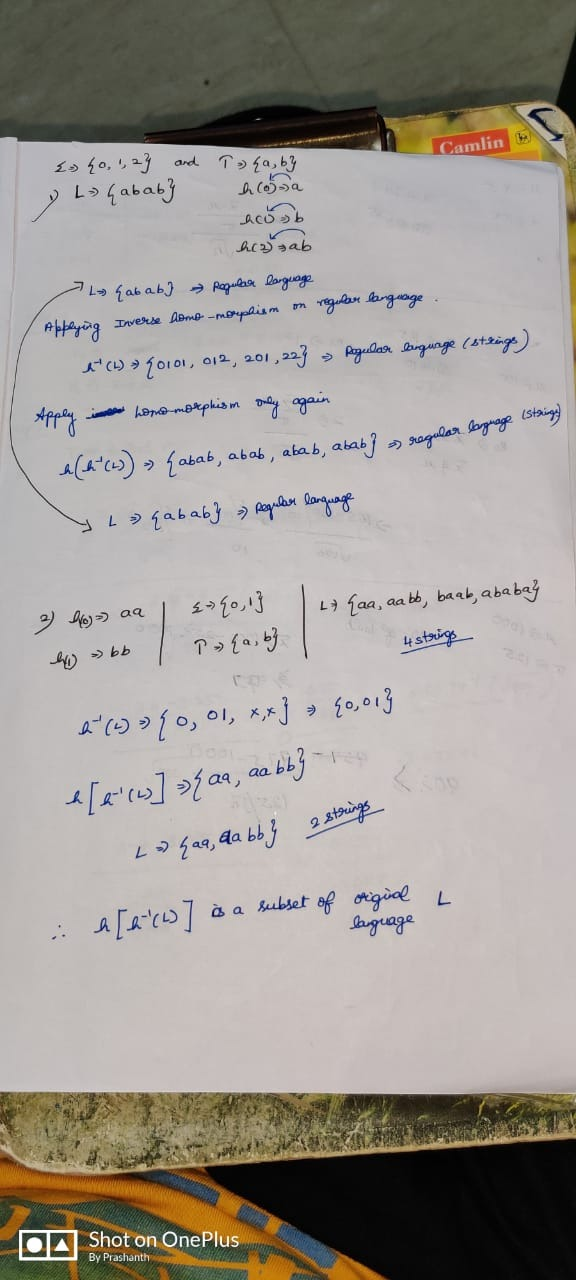 Camlin
Σ → {0, 1, 2} and T → {a, b}
1) L → {abab} h(0) → a
h(1) → b
h(2) → ab
L → {abab} → Regular language
Applying Inverse homo-morphism on regular language.
h⁻¹(L) → {0101, 012, 201, 22} → Regular language (strings)
Apply homo-morphism only again
h(h⁻¹(L)) → {abab, abab, abab, abab} → regular language (strings)
L → {abab} → Regular language
2) h(0) → aa | Σ → {0,1} | L → {aa, aabb, baab, ababa}
h(1) → bb | T → {a, b} | 4 strings
h⁻¹(L) → {0, 01, x, x} → {0, 01}
h[h⁻¹(L)] → {aa, aabb}
L → {aa, aabb} 2 strings
∴ h[h⁻¹(L)] is a subset of original L
language
Shot on OnePlus
By Prashanth